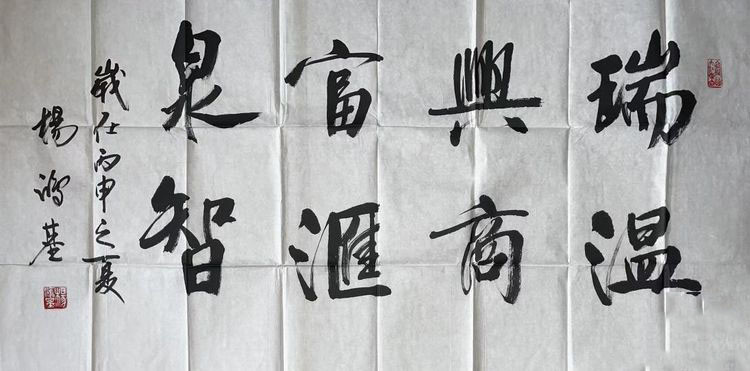 瑞興富泉
温商滙智
歲在丙申之夏
楊鴻基